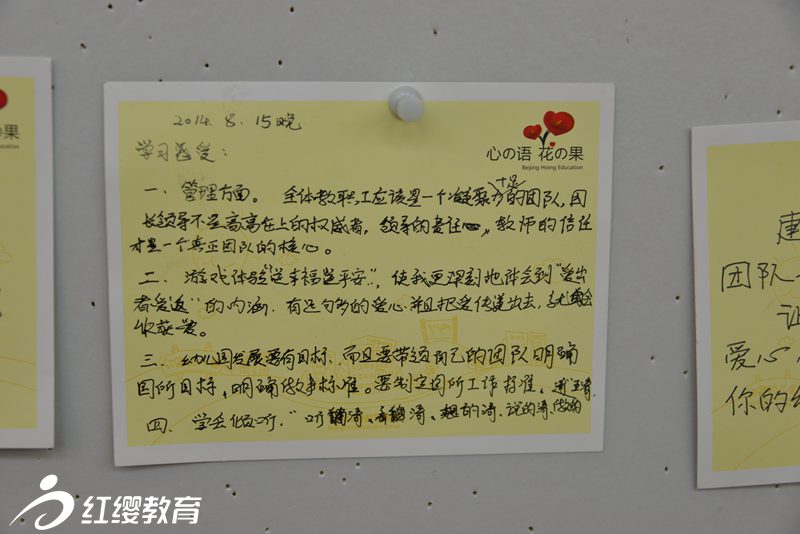 2014. 8. 15晚
学习感受：
心の语 花の果
Beijing Hoing Education
一、管理方面。 全体教职工应该是一个凝聚力十足的团队，团
长领导不是高高在上的权威者，领导的责任心，教师的信任
才是一个真正团队的核心。
二、游戏体验“送幸福送平安”，使我更深刻地体会到“爱出
者爱返”的内涵，有足够多的爱心，并且把爱传递出去，才会
收获爱。
三、幼儿园发展要有目标，而且要带动自己的团队明确
团所目标，明确做事标准。要制定园所工作标准、
四、学会倾听，“听清、看清、想的清、说的清、做的
の果
Education
建
团队
爱心
你的
红缨教育